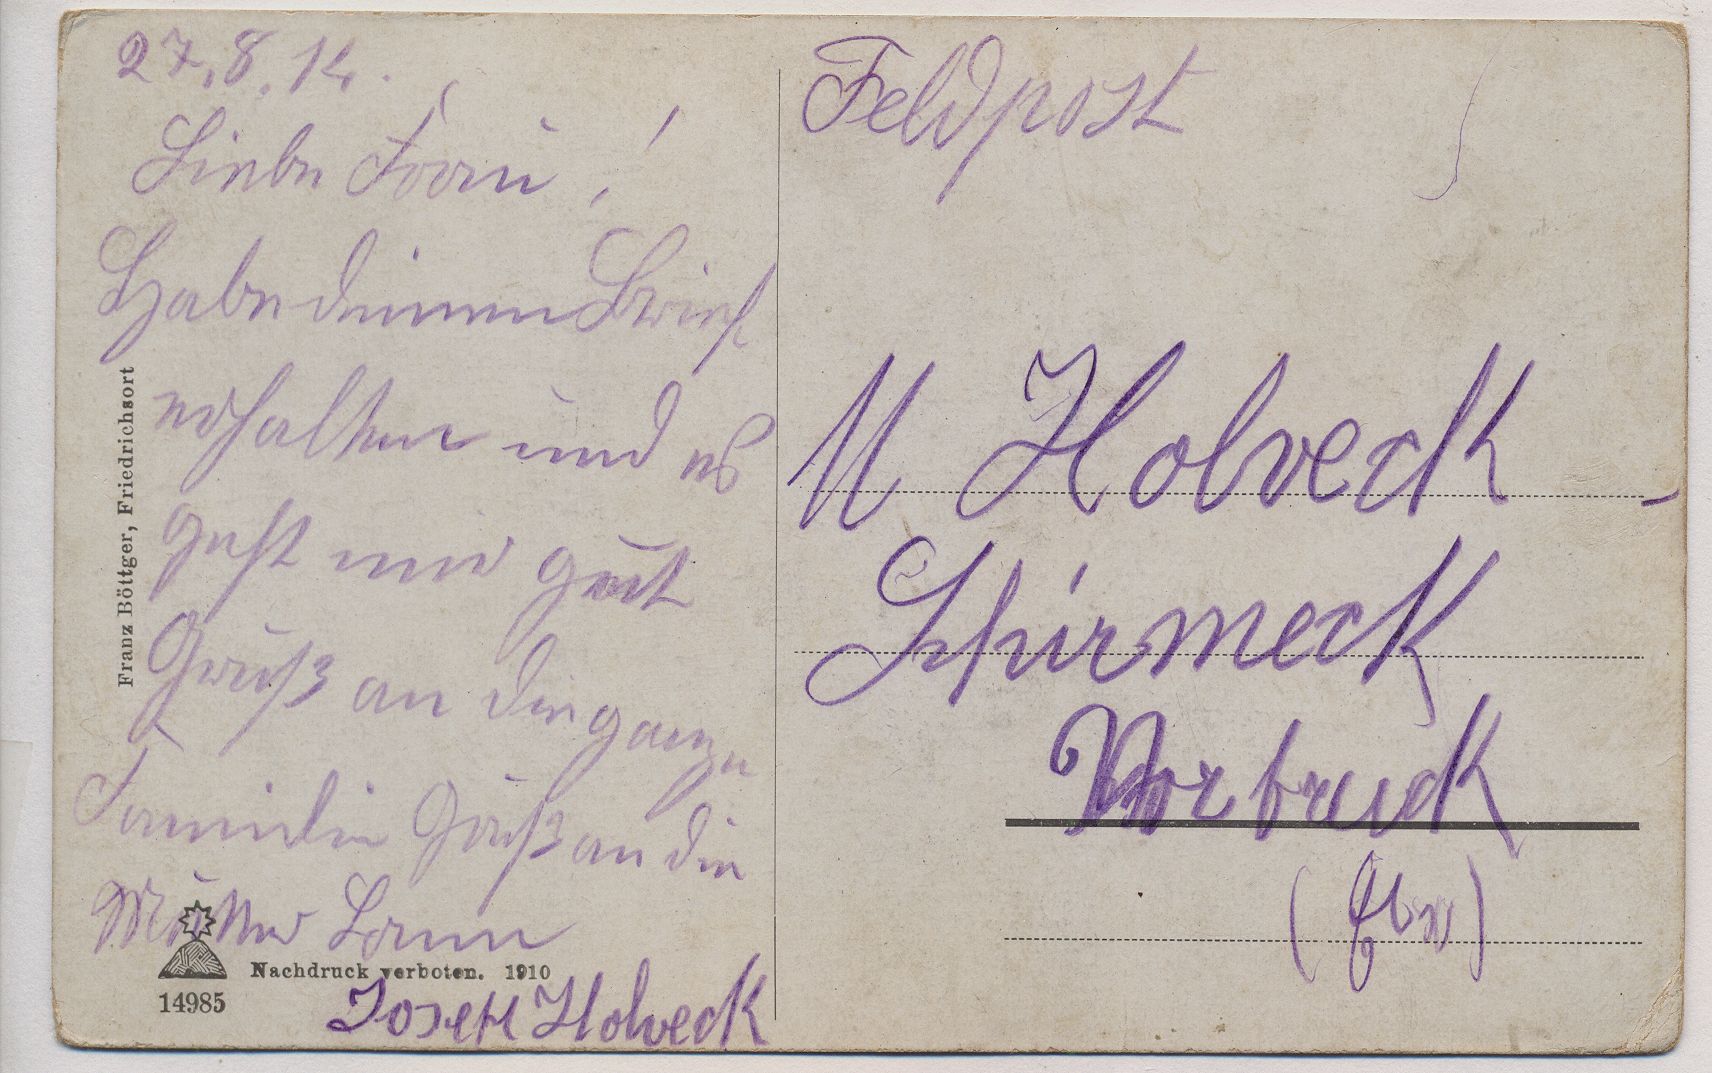 27.8.14.
Liebe Frau!
Habe deinen Brief
erhalten und es
geht mir gut
Gruß an die ganze
Familie Gruß an die
Mutter
Joseph Holveck
Franz Böttger, Friedrichsort
Nachdruck verboten. 1910
14985
Feldpost
M Holveck
Schirmeck
Vorbruck